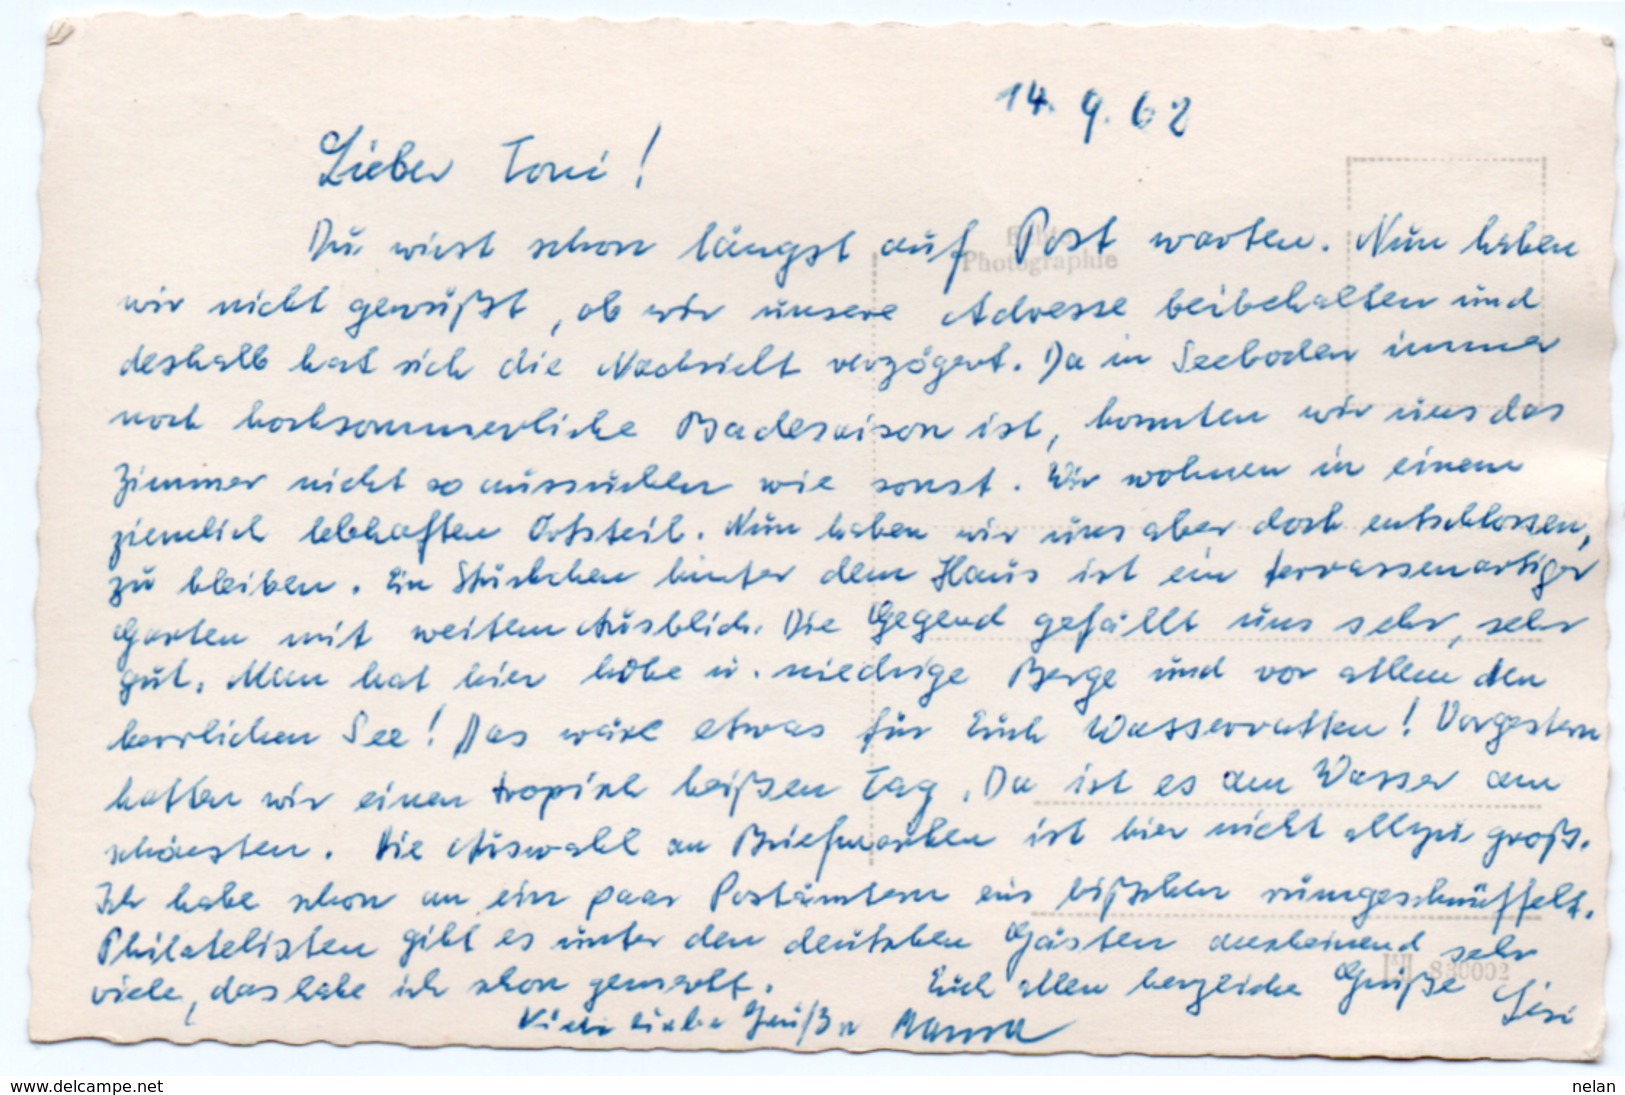 14. 9. 62
Lieber Toni!
Du wirst schon längst auf Post warten. Nun haben
Echte
Photographie
wir nicht gewußt, ob wir unsere Adresse beibehalten und
deshalb hat sich die Nachricht verzögert. Da in Seeboden immer
noch hochsommerliche Badesaison ist, konnten wir uns das
Zimmer nicht so aussuchen wie sonst. Wir wohnen in einem
ziemlich lebhaften Ortsteil. Nun haben wir uns aber doch entschlossen,
zu bleiben. Ein Stückchen hinter dem Haus ist ein terrassenartiger
Garten mit weitem Ausblick. Die Gegend gefällt uns sehr, sehr
gut. Man hat hier hohe u. niedrige Berge und vor allem den
herrlichen See! Das wäre etwas für Euch Wasserratten! Vorgestern
hatten wir einen tropisch heißen Tag. Da ist es am Wasser am
schönsten. Die Auswahl an Briefmarken ist hier nicht allzu groß.
Ich habe schon an ein paar Postämtern ein bißchen rumgeschnüffelt.
Philatelisten gibt es unter den deutschen Gästen anscheinend sehr
viele, das habe ich schon gemerkt. Euch allen herzliche Grüße
830002
Viele liebe Grüße
www.delcampe.net
nelan